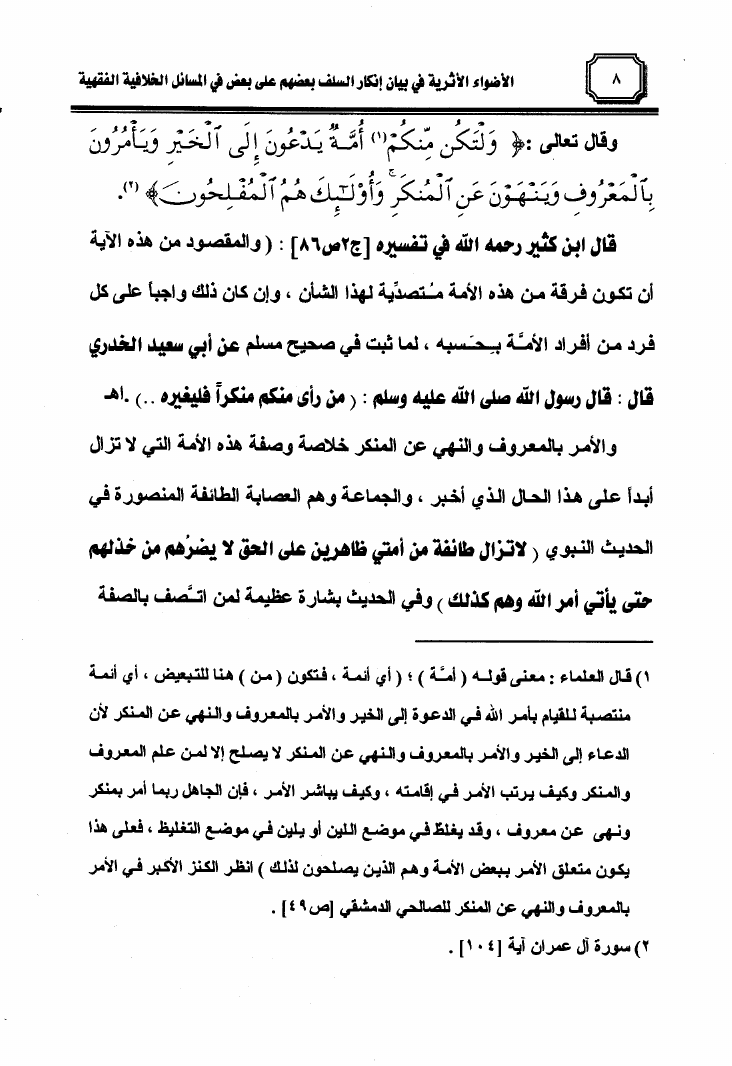 ٨
الأضواء الأثرية في بيان إنكار السلف بعضهم على بعض في المسائل الخلافية الفقهية
وقال تعالى : ﴿ وَلْتَكُن مِّنكُمْ(١) أُمَّةٌ يَدْعُونَ إِلَى ٱلْخَيْرِ وَيَأْمُرُونَ
بِٱلْمَعْرُوفِ وَيَنْهَوْنَ عَنِ ٱلْمُنكَرِ ۚ وَأُو۟لَـٰٓئِكَ هُمُ ٱلْمُفْلِحُونَ﴾ (٢).
قال ابن كثير رحمه الله في تفسيره [ج٢ص٨٦] : ( والمقصود من هذه الآية
أن تكون فرقة من هذه الأمة مُتصدِّية لهذا الشأن ، وإن كان ذلك واجباً على كل
فرد من أفراد الأمَّة بِحَسبه ، لما ثبت في صحيح مسلم عن أبي سعيد الخدري
قال : قال رسول الله صلى الله عليه وسلم : ( من رأى منكم منكراً فليغيره ..) .اهـ
والأمر بالمعروف والنهي عن المنكر خلاصة وصفة هذه الأمة التي لا تزال
أبداً على هذا الحال الذي أخبر ، والجماعة وهم العصابة الطائفة المنصورة في
الحديث النبوي ( لاتزال طائفة من أمتي ظاهرين على الحق لا يضرُهم من خذلهم
حتى يأتي أمر الله وهم كذلك ) وفي الحديث بشارة عظيمة لمن اتَّصف بالصفة
١) قال العلماء : معنى قوله ( أمَّة ) ؛ ( أي أئمة ، فتكون ( من ) هنا للتبعيض ، أي أئمة
منتصبة للقيام بأمر الله في الدعوة إلى الخير والأمر بالمعروف والنهي عن المنكر لأن
الدعاء إلى الخير والأمر بالمعروف والنهي عن المنكر لا يصلح إلا لمن علم المعروف
والمنكر وكيف يرتب الأمر في إقامته ، وكيف يباشر الأمر ، فإن الجاهل ربما أمر بمنكر
ونهى عن معروف ، وقد يغلظ في موضع اللين أو يلين في موضع التغليظ ، فعلى هذا
يكون متعلق الأمر ببعض الأمة وهم الذين يصلحون لذلك ) انظر الكنز الأكبر في الأمر
بالمعروف والنهي عن المنكر للصالحي الدمشقي [ص٤٩] .
٢) سورة آل عمران آية [١٠٤] .